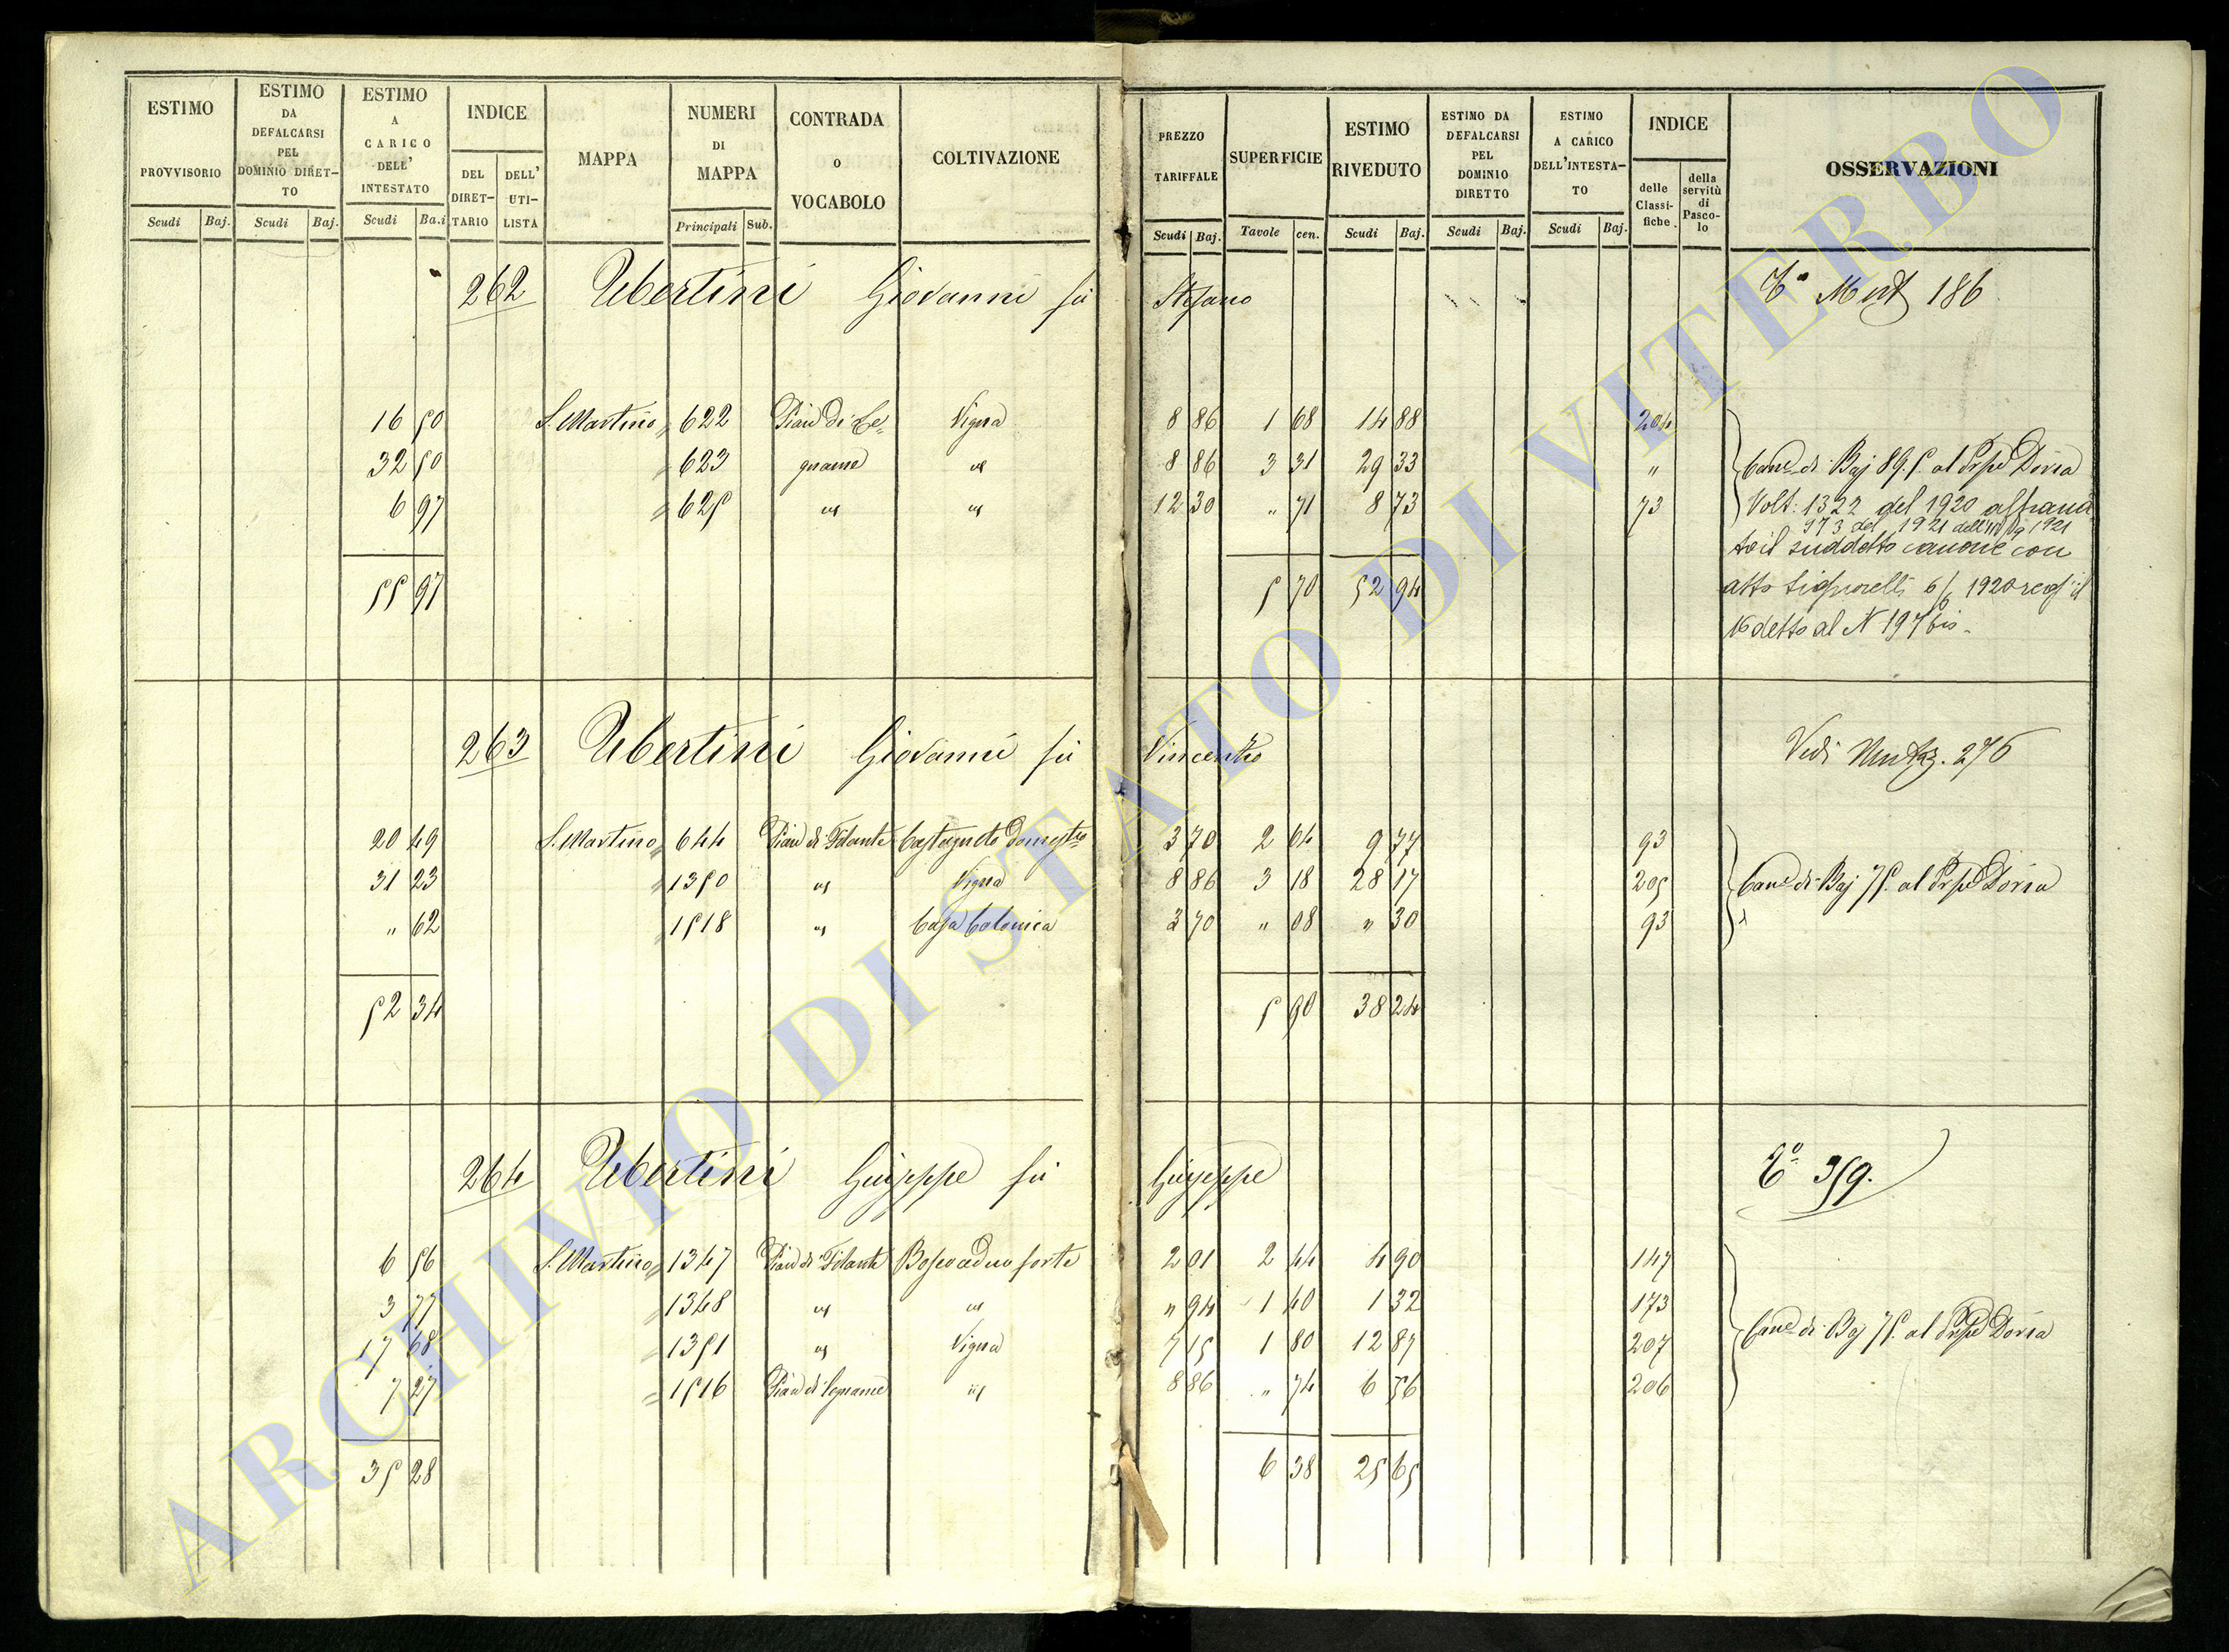 ESTIMO PROVVISORIO
ESTIMO DA DEFALCARSI PEL DOMINIO DIRET-TO
ESTIMO A CARICO DELL' INTESTATO
INDICE
DEL DIRET-TARIO
DELL' UTI-LISTA
MAPPA
NUMERI DI MAPPA
CONTRADA O VOCABOLO
COLTIVAZIONE
PREZZO TARIFFALE
SUPERFICIE
ESTIMO RIVEDUTO
ESTIMO DA DEFALCARSI PEL DOMINIO DIRETTO
ESTIMO A CARICO DELL'INTESTA-TO
INDICE
delle Classi-fiche.
della servitù di Pasco-lo
OSSERVAZIONI
Scudi Baj. Scudi Baj. Scudi Ba.i Principali Sub. Scudi Baj. Tavole cen. Scudi Baj. Scudi Baj. Scudi Baj.
262 Ubertini Giovanni fù Stefano 186
16 50 S. Martino 622 Pian di Le= Vigna 8 86 1 68 14 88 204
32 50 623 gname " 8 86 3 31 29 33 "
6 97 625 " " 12 30 " 71 8 73 73
55 97 5 70 52 94
Cane di Baj 89.5. al Prpe Doria
Volt: 1322 del 1920 affranca
973 del 1921
to il suddetto canone con
atto Signorelli 6/6 1920 reg il
16 detto al N 197 bis.
263 Ubertini Giovanni fù Vincenzo Vedi 276
20 49 S. Martino 644 Pian di Tolante Castagneto domestco 3 70 2 64 9 77 93
31 23 1350 " Vigna 8 86 3 18 28 17 205
" 62 1518 " Casa Colonica 3 70 " 08 " 30 93
52 34 5 90 38 24
Cane di Baj 75. al Prpe Doria
264 Ubertini Giuseppe fù Giuseppe 359.
6 56 S. Martino 1347 Pian di Tolante Bosco ceduo forte 2 01 2 44 4 90 147
3 77 1348 " " " 94 1 40 1 32 173
17 68 1351 " Vigna 7 15 1 80 12 87 207
7 27 1516 Pian di Legname " 8 86 " 74 6 56 206
35 28 6 38 25 65
Cane di Baj 75. al Prpe Doria
ARCHIVIO DI STATO DI VITERBO